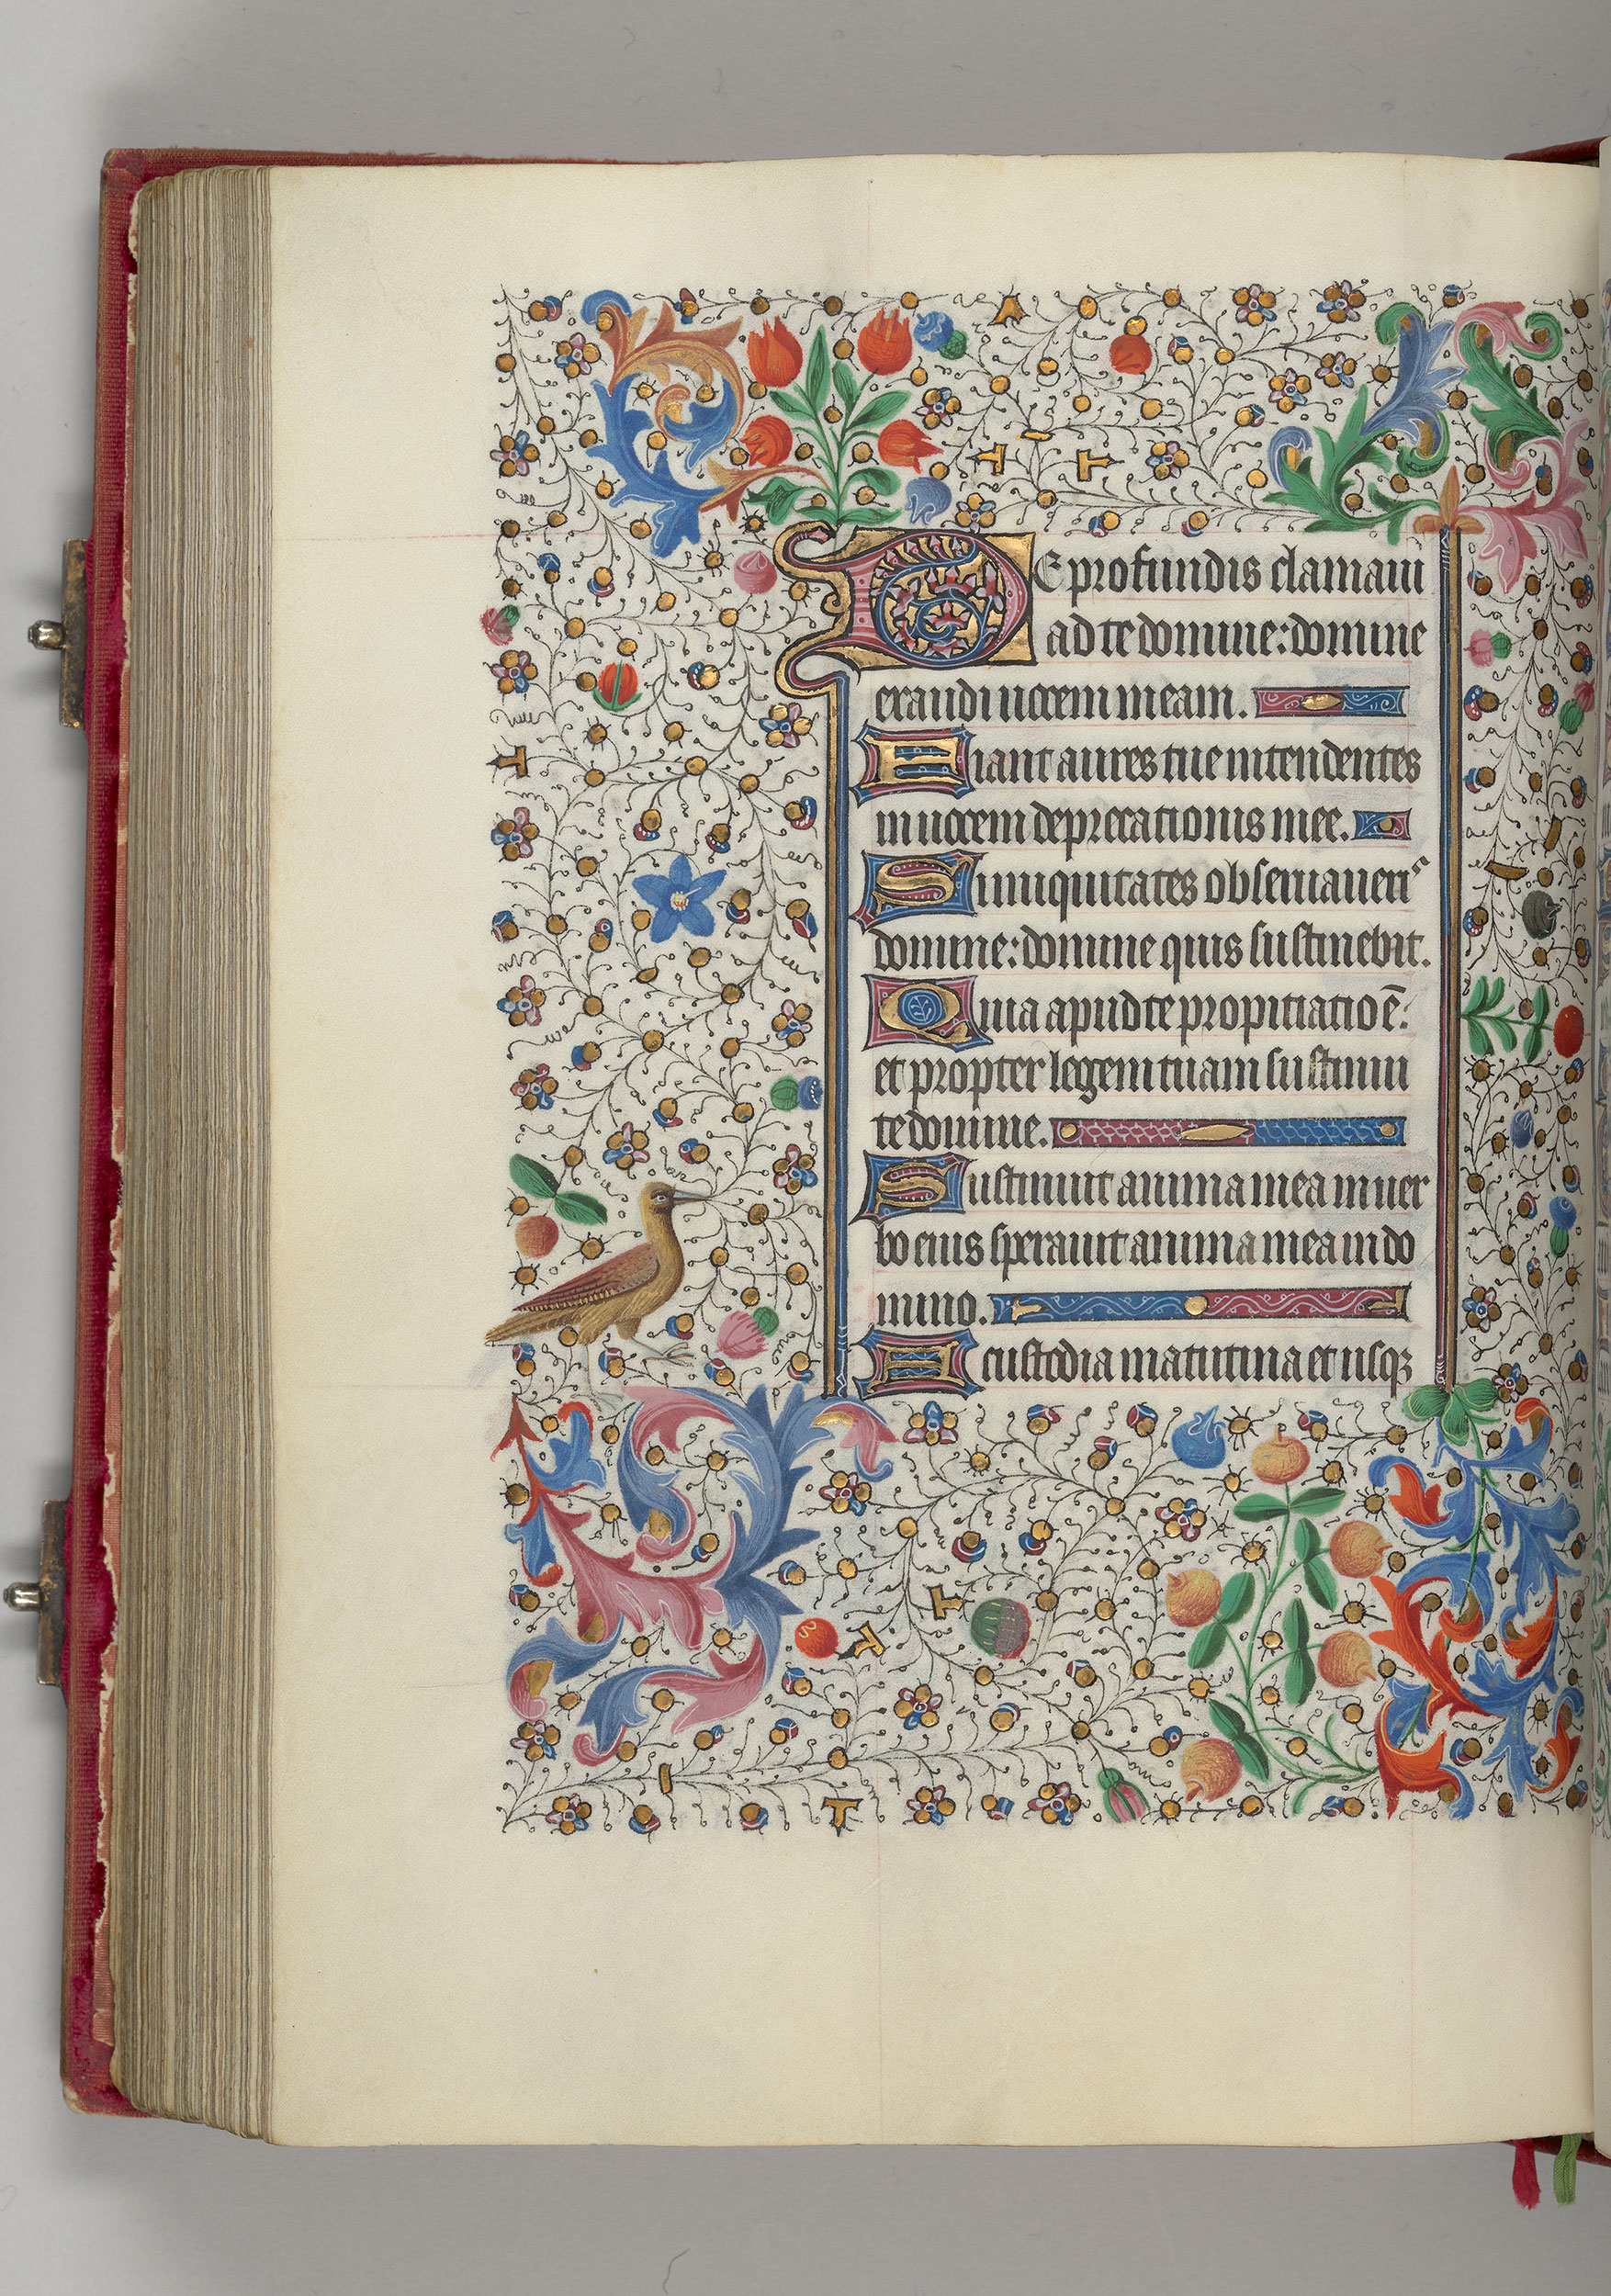 De profundis clamaui
ad te domine: domine
exaudi uocem meam.
Fiant aures tue intendentes
in uocem deprecationis mee.
Si iniquitates obseruaueris
domine: domine quis sustinebit.
Quia apud te propitiatio ē:
et propter legem tuam sustinui
te domine.
Sustinuit anima mea in uer
bo eius sperauit anima mea in do
mino.
A custodia matutina et usq̄